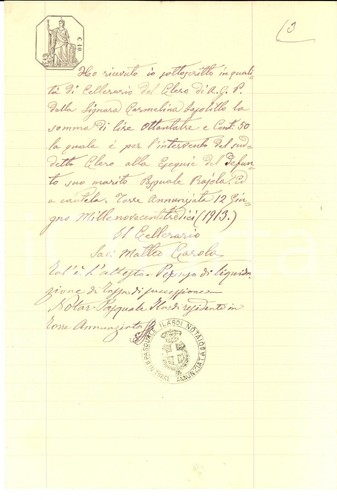 (3
C. 10
Ho ricevuto io sottoscritto in quali
tà di Cellerario del Clero di A.G.P.
dalla Signora Carmelina
somma di lire Ottantatre e Cent. 50
la quale è per l'intervento del sud
detto Clero alle Esequie del defun
to suo marito Pasquale Bajola. Ed
a cautela. Torre Annunziata 12 Giu
gno Millenovecentotredici (1913.)
Il Cellerario
Sac. Matteo Carola
Tal'è l'attesto
zione di tassa di successione
Notar Pasquale Ilardi residente in
Torre Annunziata
PASQUALE ILARDI NOTAIO
TORRE ANNUNZIATA